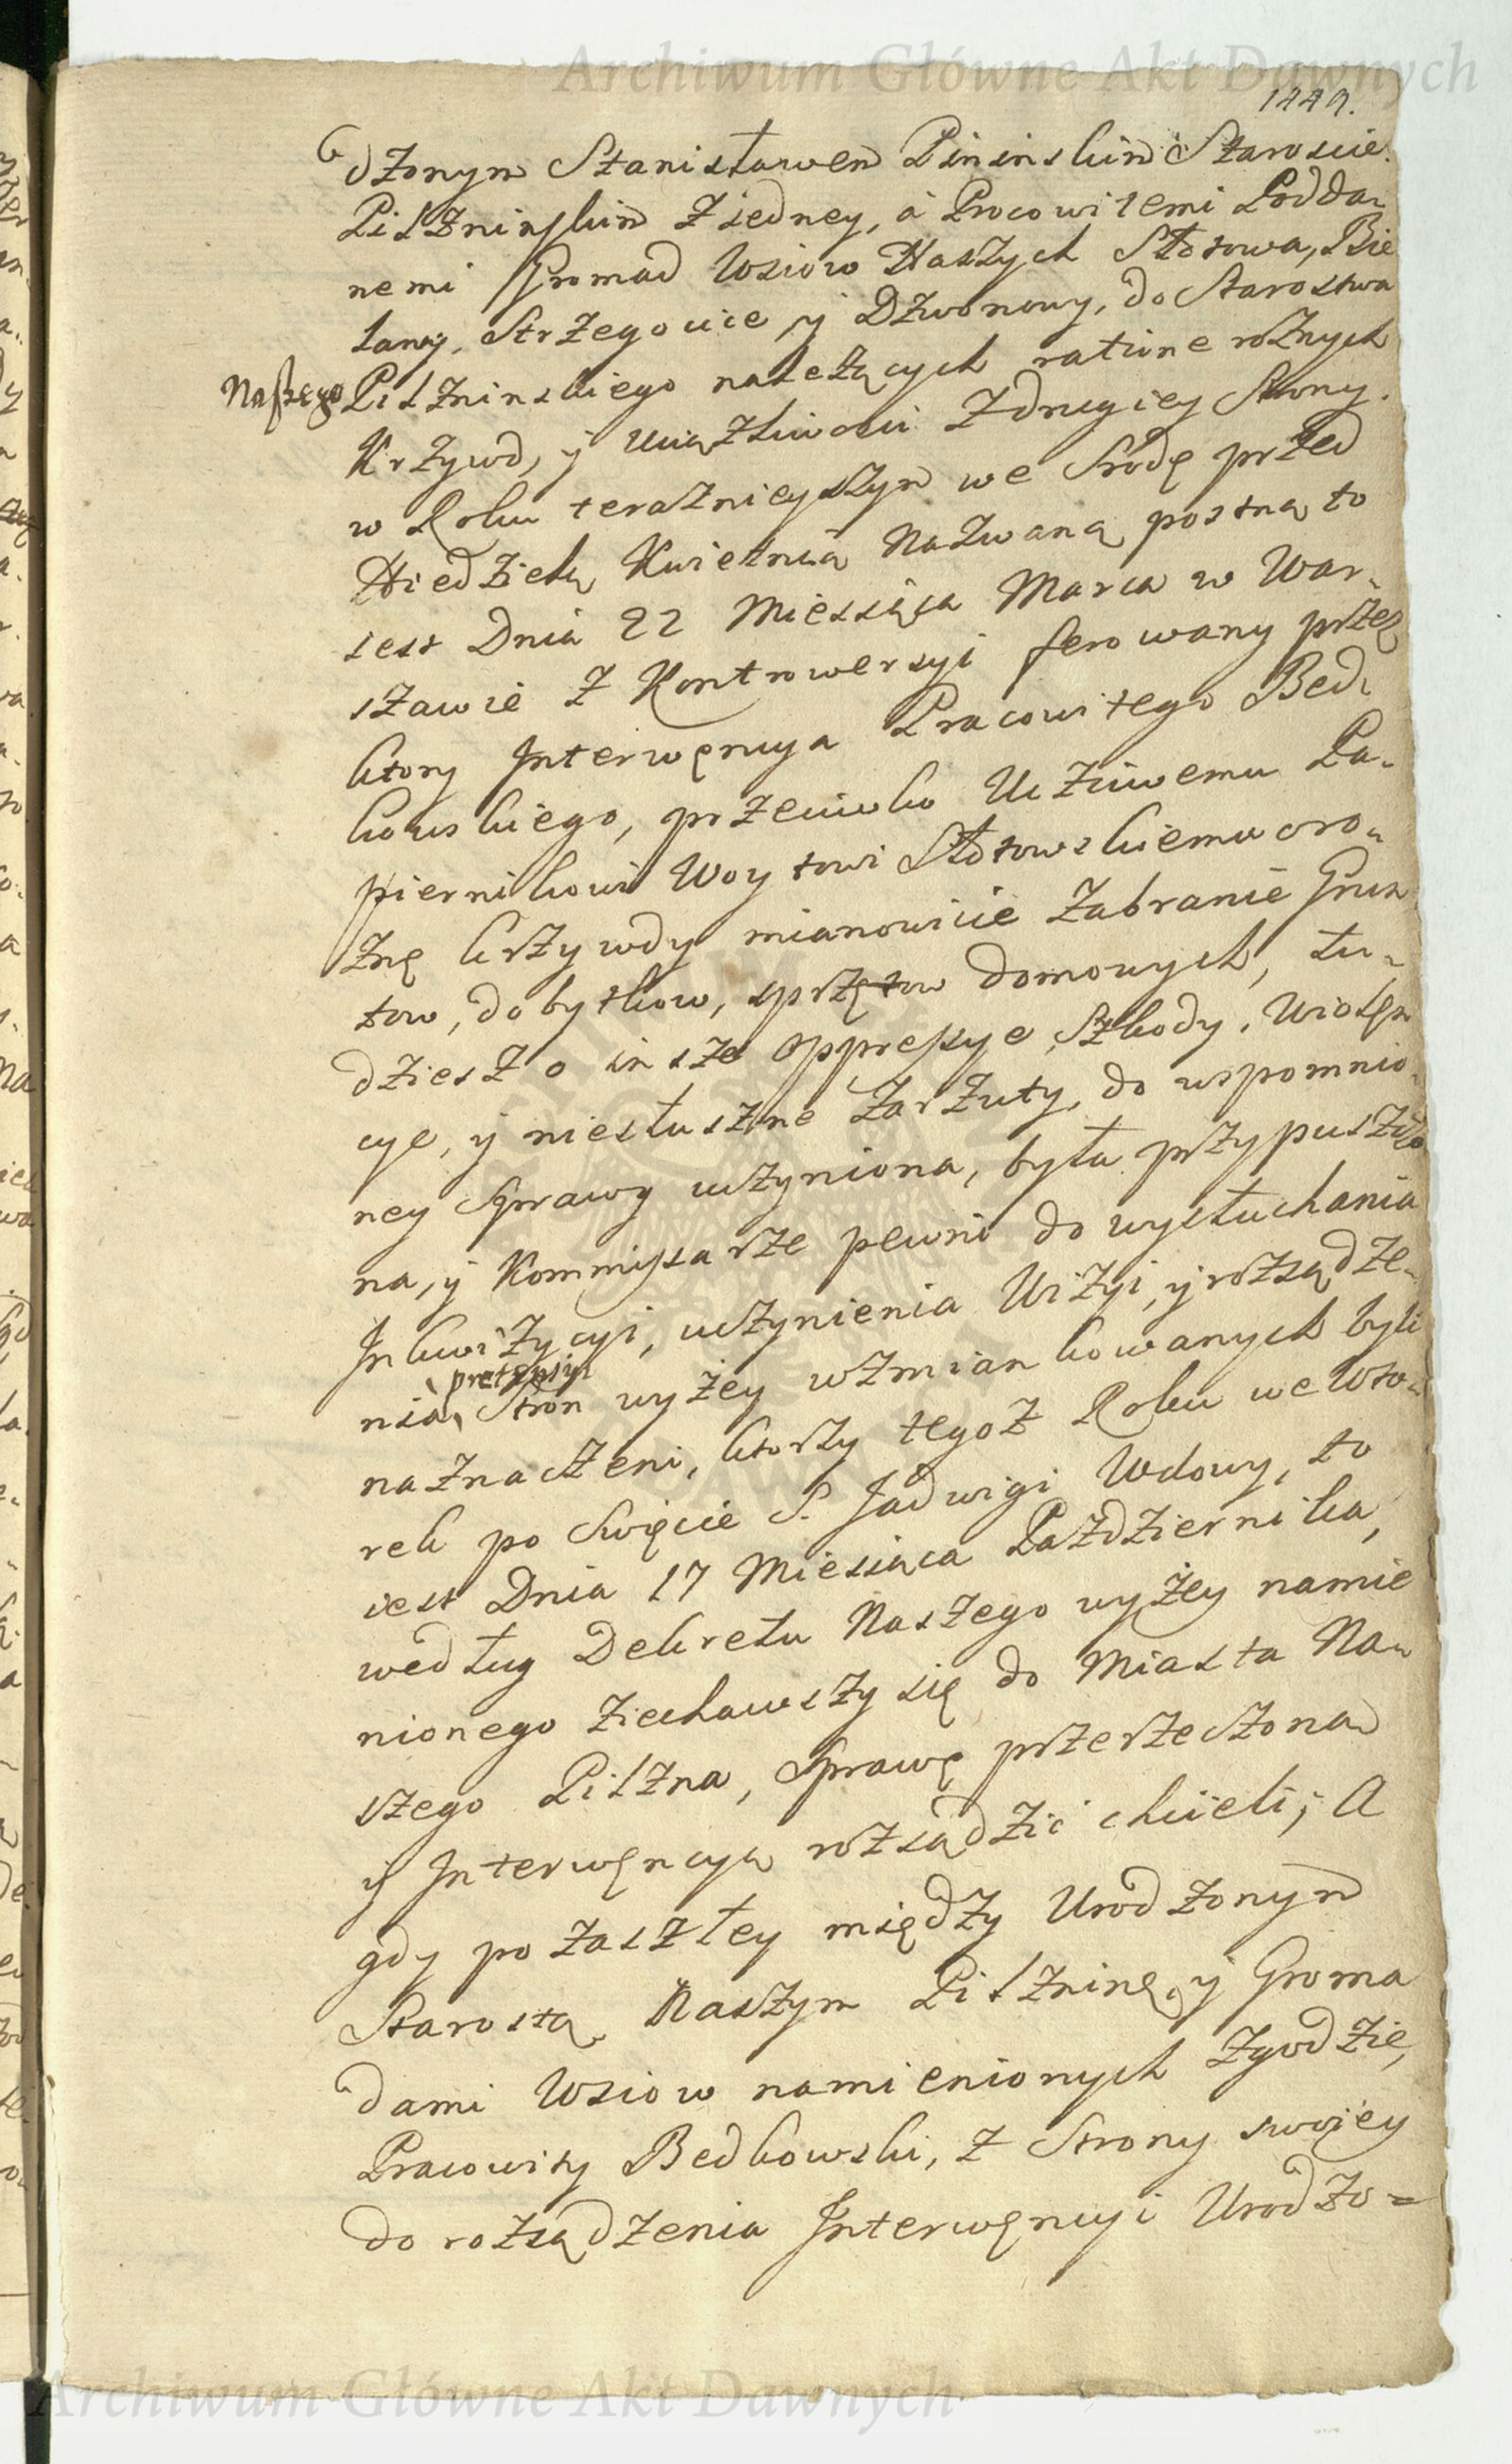 Archiwum Główne Akt Dawnych
1449.
dzonym Stanisławem Pininskim Staroscie
Pilznińskim z iedney, á Pracowitemi Podda-
nemi Gromad Wsiow Naszych Słotowa, Bie
lawy, Strzegocice y Dzwonowy, do Starostwa
Naszego Pilzninskiego należących ratione roznych
Krzywd, y uciążliwosci z drugiey Strony.
w Roku teraznieyszym we Srodę przed
Niedzielą Kwietnią Nazwaną postną to
iest Dnia 22 Miesiąca Marca w War-
szawie z Kontrowersyi ferowany przez
ktory Interwencya Pracowitego Bed-
kowskiego, przeciwko Uczciwemu Pa-
piernikowi Woytowi Słotowskiemu o ro-
zne krzywdy mianowicie zabranie Grun
tow, dobytkow, sprzętow domowych, tu-
dziesz o insze oppressye, Szkody, Wiolen
cye, y niesłuszne zarzuty, do wspomnio-
ney Sprawy uczyniona, była przypuszczo
na, y Kommissarze pewni do wysłuchania
Inkwizycyi, uczynienia Wizyi, y rozsądze-
nia pretensyi Stron wyżey wzmiankowanych byli
naznaczeni, ktorzy tegoż Roku we Wto-
rek po Swięcie S. Jadwigi Wdowy, to
iest Dnia 17 Miesiąca Pazdziernika,
według Dekretu Naszego wyżey namie
nionego ziechawszy się do Miasta Na-
szego Pilzna, Sprawę przerzeczoną
y Interwencyą rozsądzić chcieli; A
gdy po zaszłey między Urodzonym
Starostą Naszym Pilznins. y Groma
dami Wsiow namienionych zgodzie,
Pracowity Bedkowski, z Strony swoiey
do rozsądzenia Interwencyi Urodzo=
Archiwum Główne Akt Dawnych